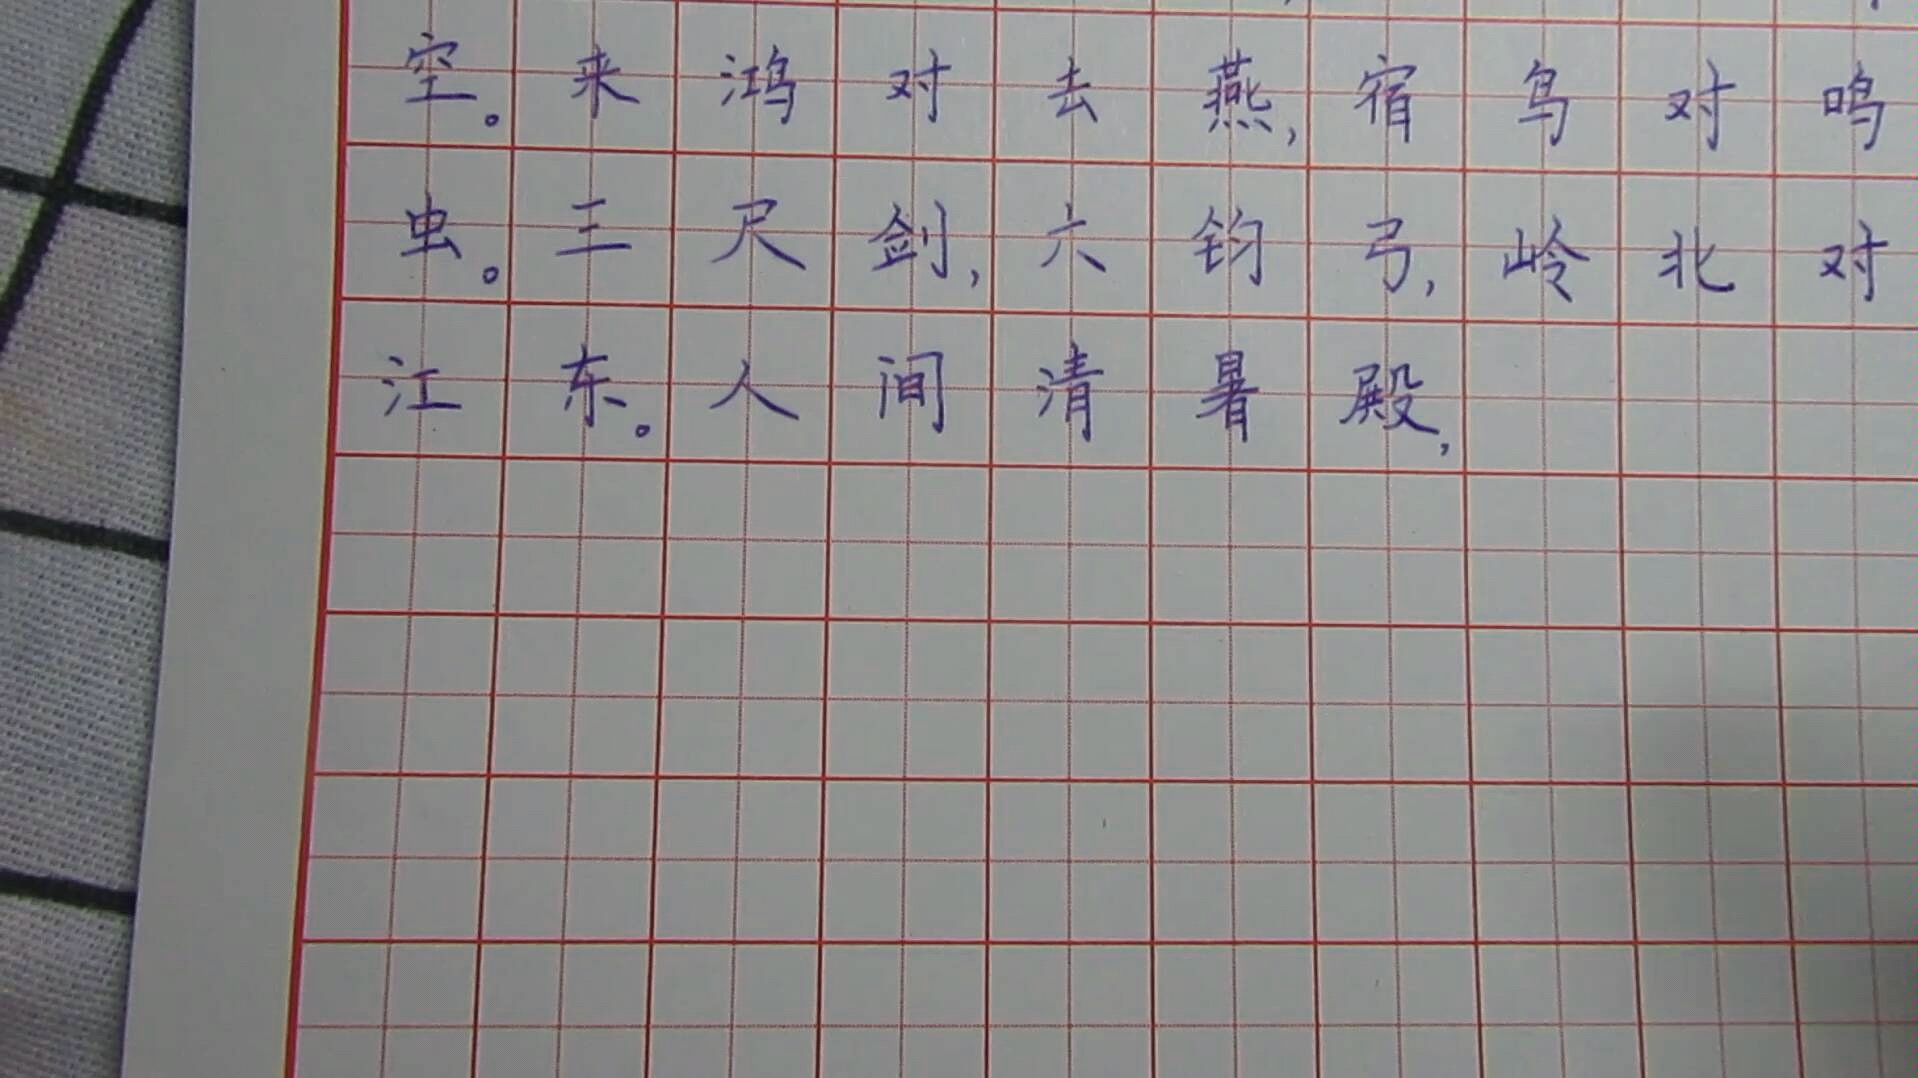 空。来鸿对去燕,宿鸟对鸣
虫。三尺剑,六钧弓,岭北对
江东。人间清暑殿,